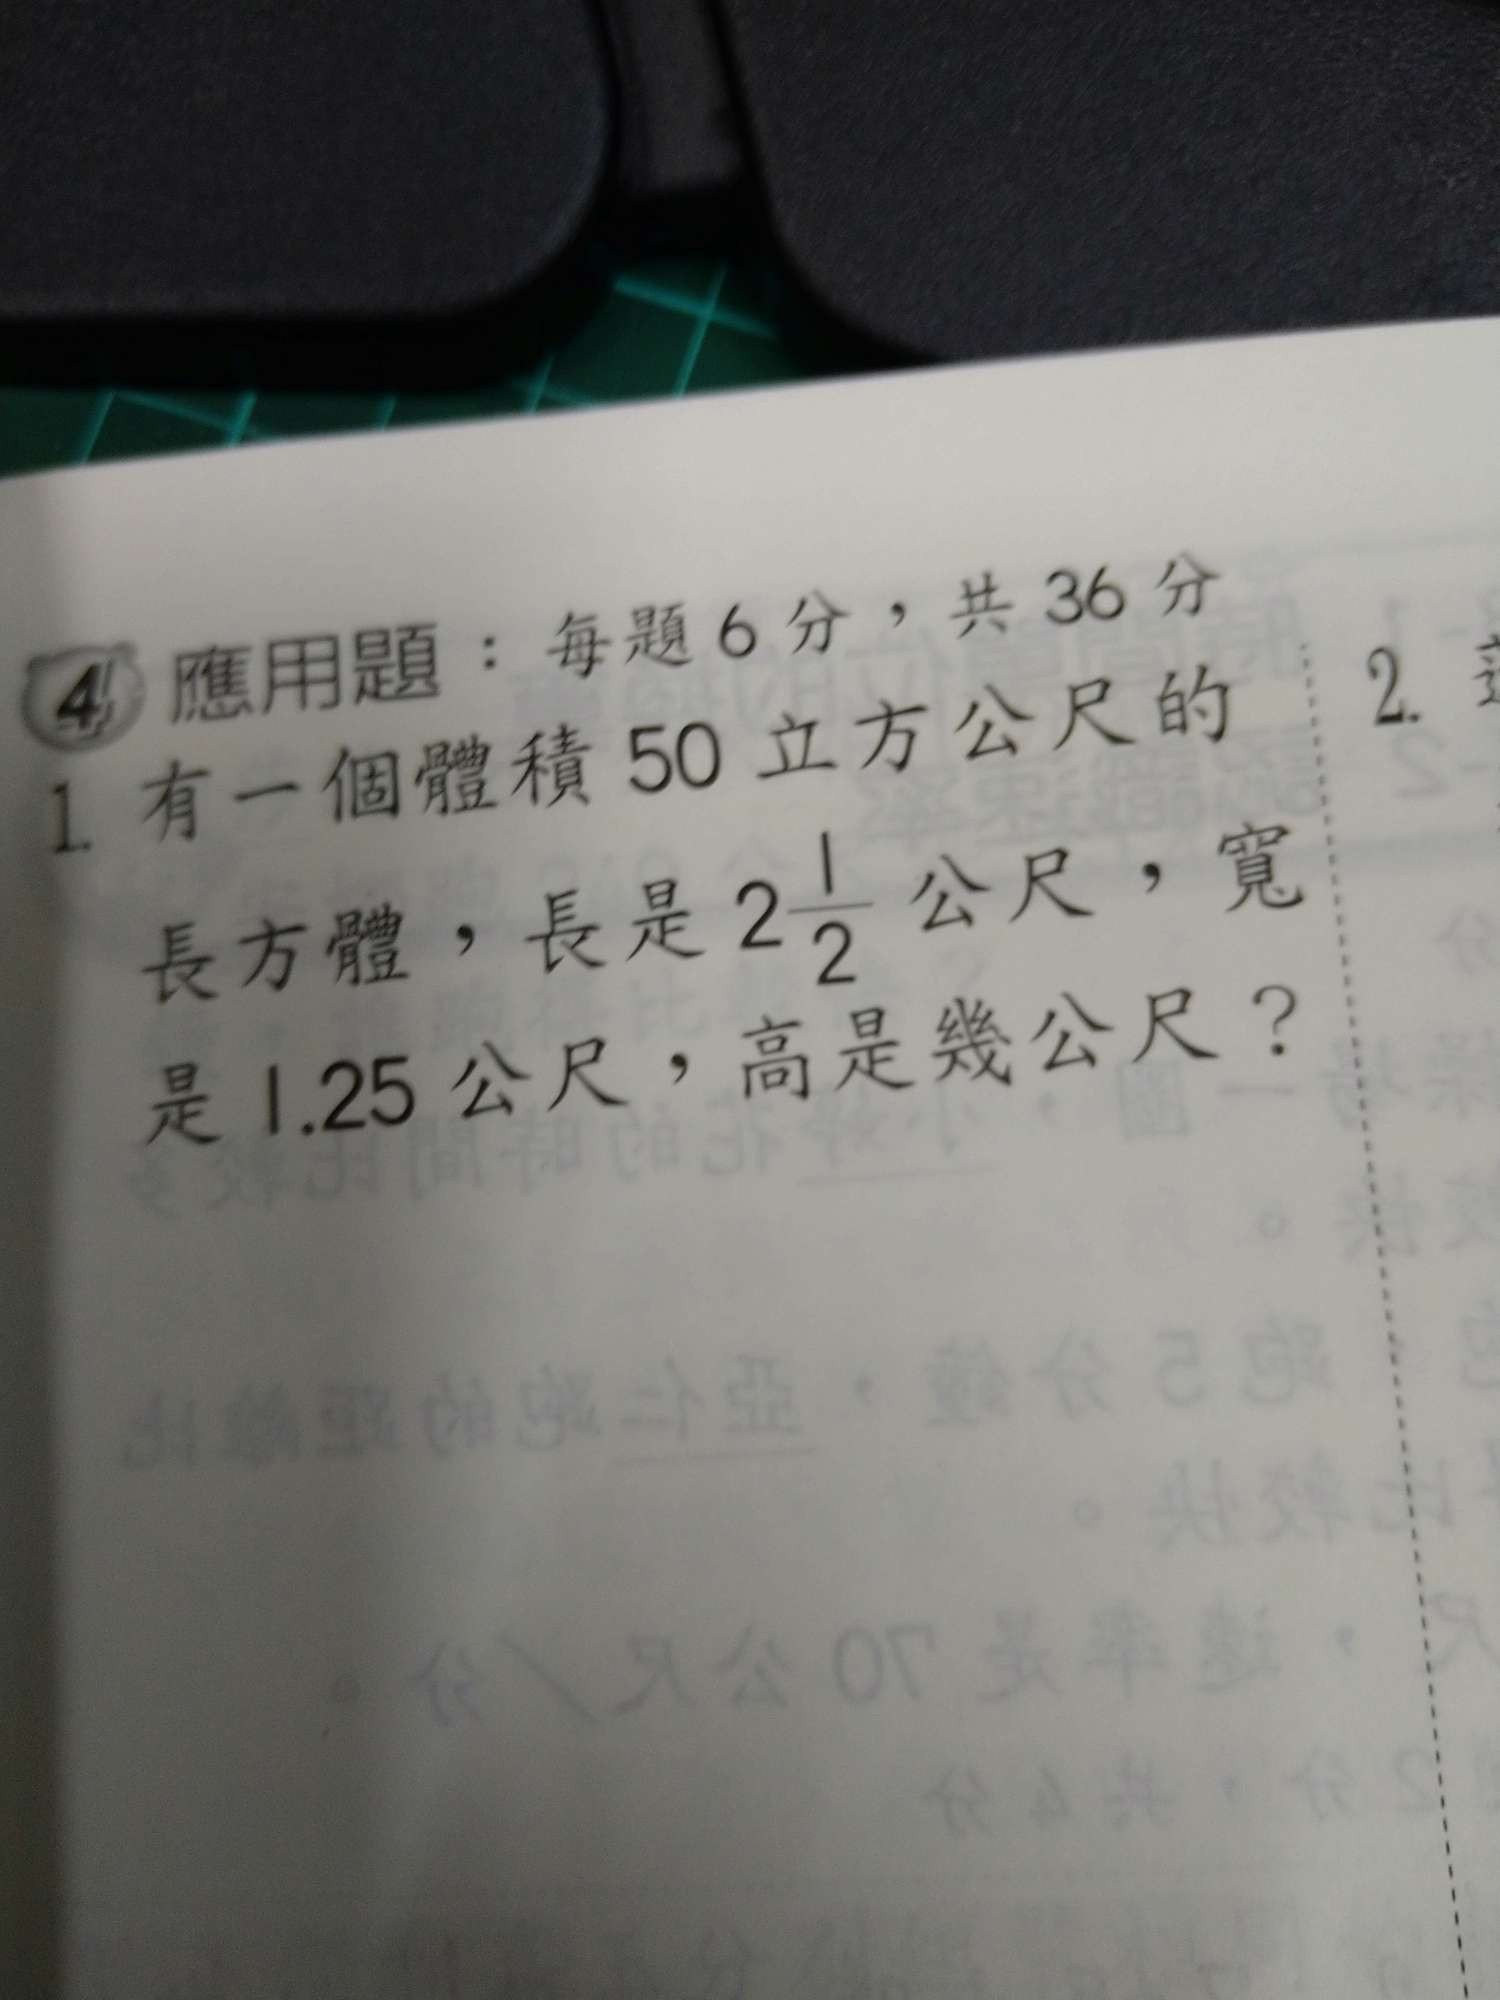 4 應用題：每題6分，共36分
1. 有一個體積50立方公尺的
長方體，長是2 1/2 公尺，寬
是1.25公尺，高是幾公尺？
2.